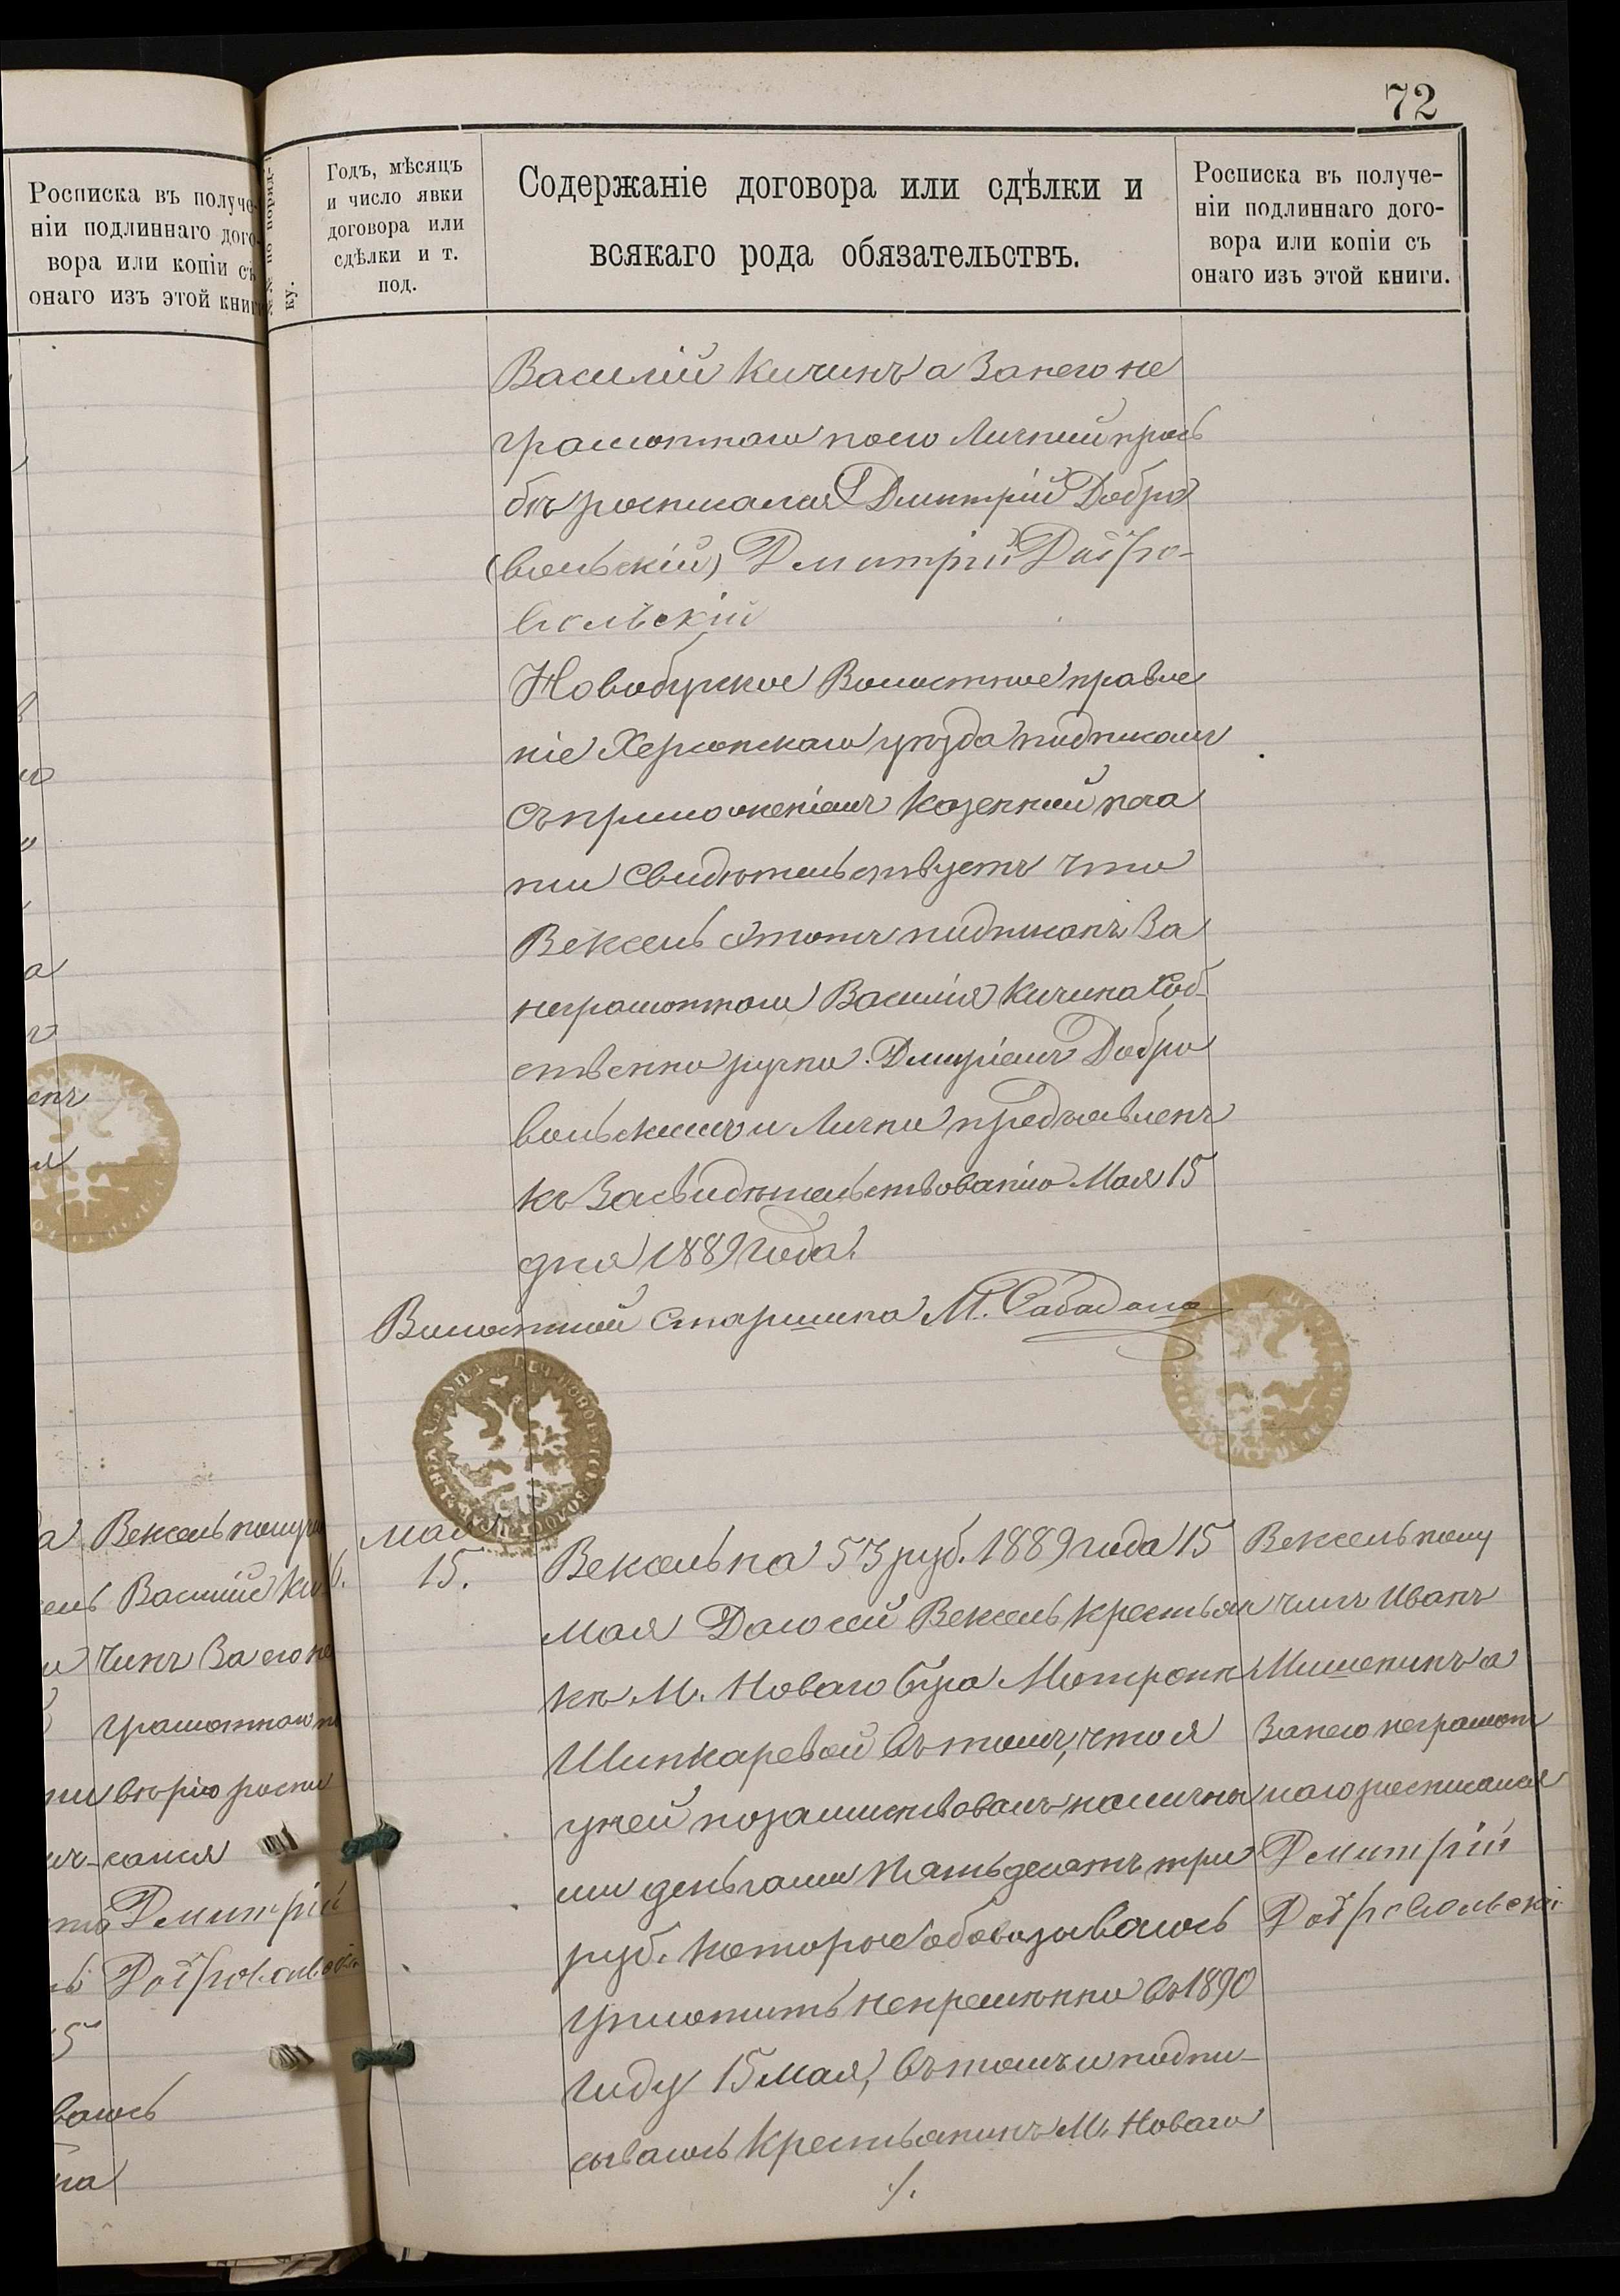 72
Росписка въ получе-
ніи подлиннаго дого-
вора или копіи съ
онаго изъ этой книги
ку.
Годъ, мѣсяцъ
и число явки
договора или
сдѣлки и т.
под.
Содержаніе договора или сдѣлки и
всякаго рода обязательствъ.
Росписка въ получе-
ніи подлиннаго дого-
вора или копіи съ
онаго изъ этой книги.
Василій Кичинъ а Занего не
грамотнаго поего Личной прось
бѣ росписался Дмитрій Добро
(вольскій) Дмитрій Добро-
вольскій
Новобугское Волостное правле
ніе Херсонскаго уѣзда подписомъ
съ приложеніемъ Казенной печа
ти Свидѣтельствуетъ что
Вексель этотъ подписанъ За
неграмотнаго Василія Кичина Соб-
ственно ручно Дмитріемъ Добро
вольскимъ и Лично предъявленъ
къ Засвидѣтельствованію Мая 15
дня 1889 года.
Волостной Старшина М. Сабадаха
Вексель получи
Василій Ки
чинъ За его не
грамотнаго
вѣрію роспи
сался
Дмитрій
Добровольскій
ваюсь
на
Мая
15.
Вексель на 53 руб. 1889 года 15
мая Дано сей Вексель Крестьян
кѣ М. Новаго Буга Матронѣ
Шинкаревой Въ томъ, что я
уней позаимствовалъ наличны
ми деньгами Пятьдесятъ три
руб. которые обовязываюсь
Уплотить непремѣнно Въ 1890
Году 15 Мая, Въ томъ и подпи-
сываюсь Крестьянинъ М. Новаго
./.
Вексель полу
чилъ Иванъ
Мишенинъ а
Занего неграмот
наго росписался
Дмитрій
Добровольскій